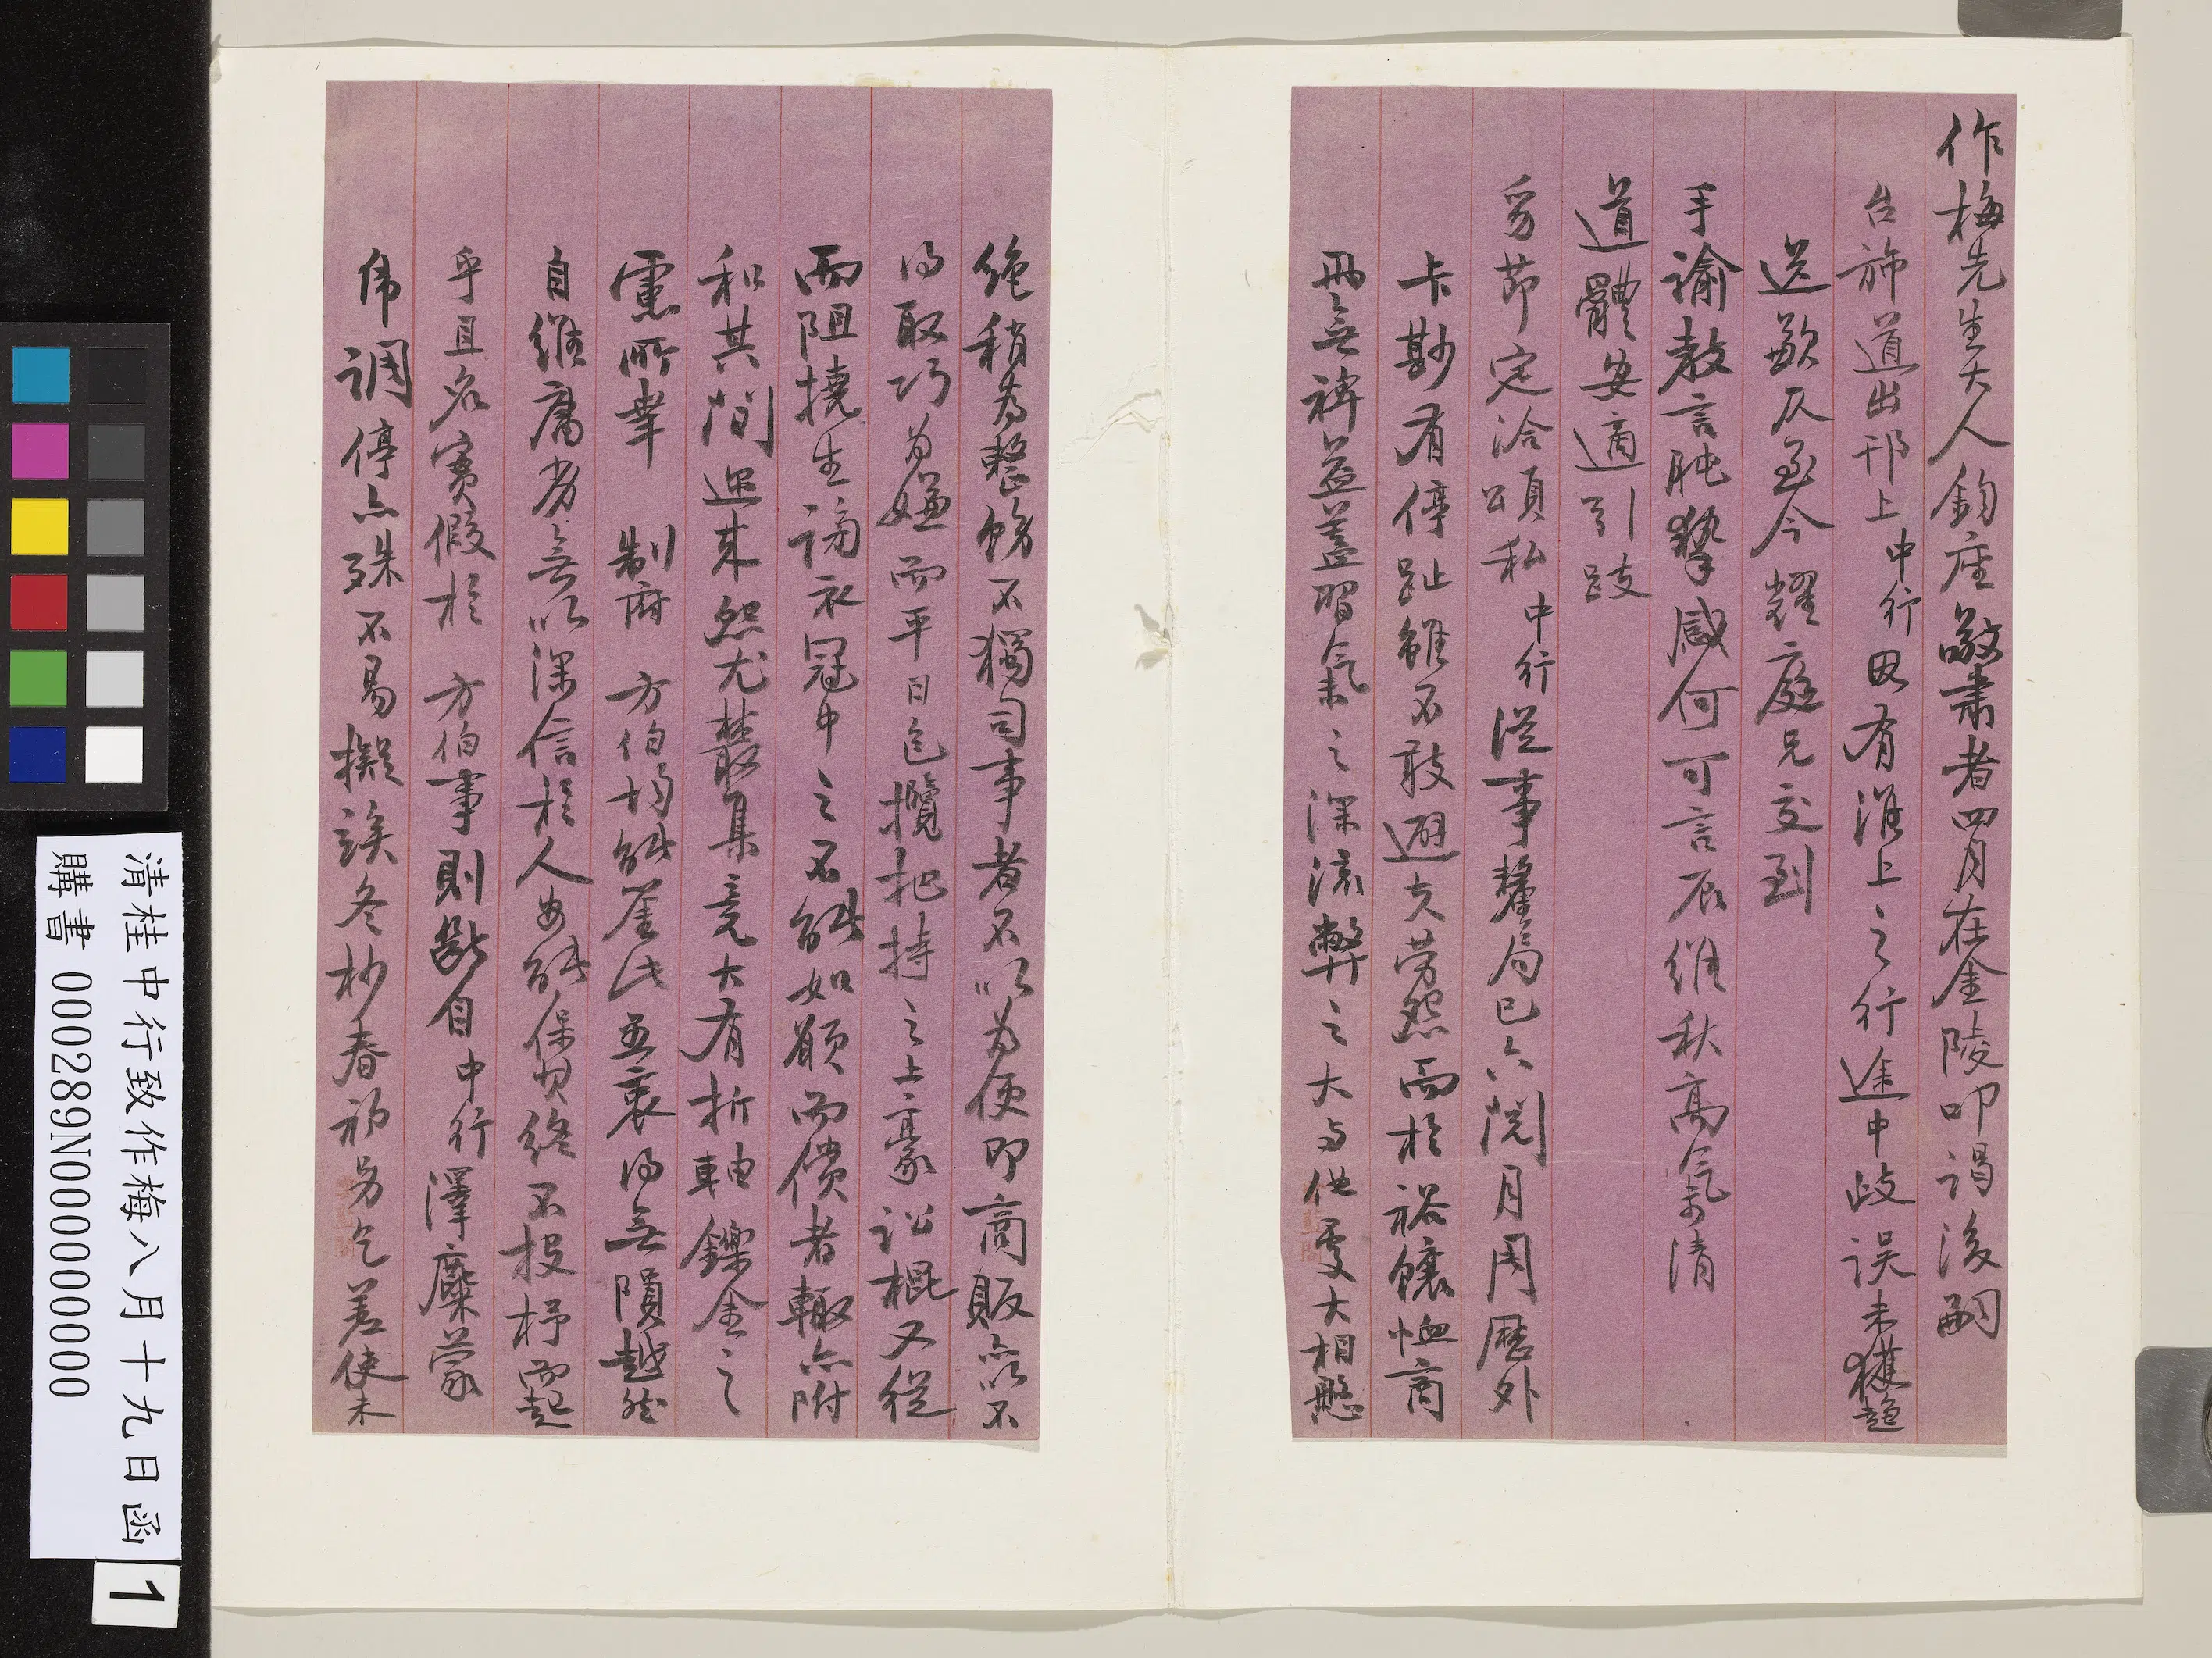 作梅先生大人鈞座敬肅者四月在金陵叩謁後嗣
台旆道出邗上中行因有淮上之行途中歧誤未獲趨
送歉仄至今耀庭兄交到
手諭教言肫摯感何可言辰維秋高氣清
道體安適引跂
旁節定洽頌私中行從事釐局已六閱月周歷外
卡斟有停趾雖不敢避夫勞怨而於裕餉恤商
毫無裨益蓋習氣之深流弊之大与他處大相懸
絕稍為整飭不獨司事者不以為便即商販亦不
得取巧為嫌而平日包攬把持之土豪訟棍又從
而阻撓生謗衣冠中之不能如願而償者輒亦附
和其間邇來怨尤叢集竟大有折軸鑠金之
慮所幸 制府 方伯均能鑒此愚衷得無隕越然
自維庸劣無以深信於人安能保其終不投杼而起
乎且名實假於 方伯事則斷自中行澤麋蒙
虎調停亦殊不易擬俟冬杪春初另乞差使未
清桂中行致作梅八月十九日函
購書 000289N000000000
1